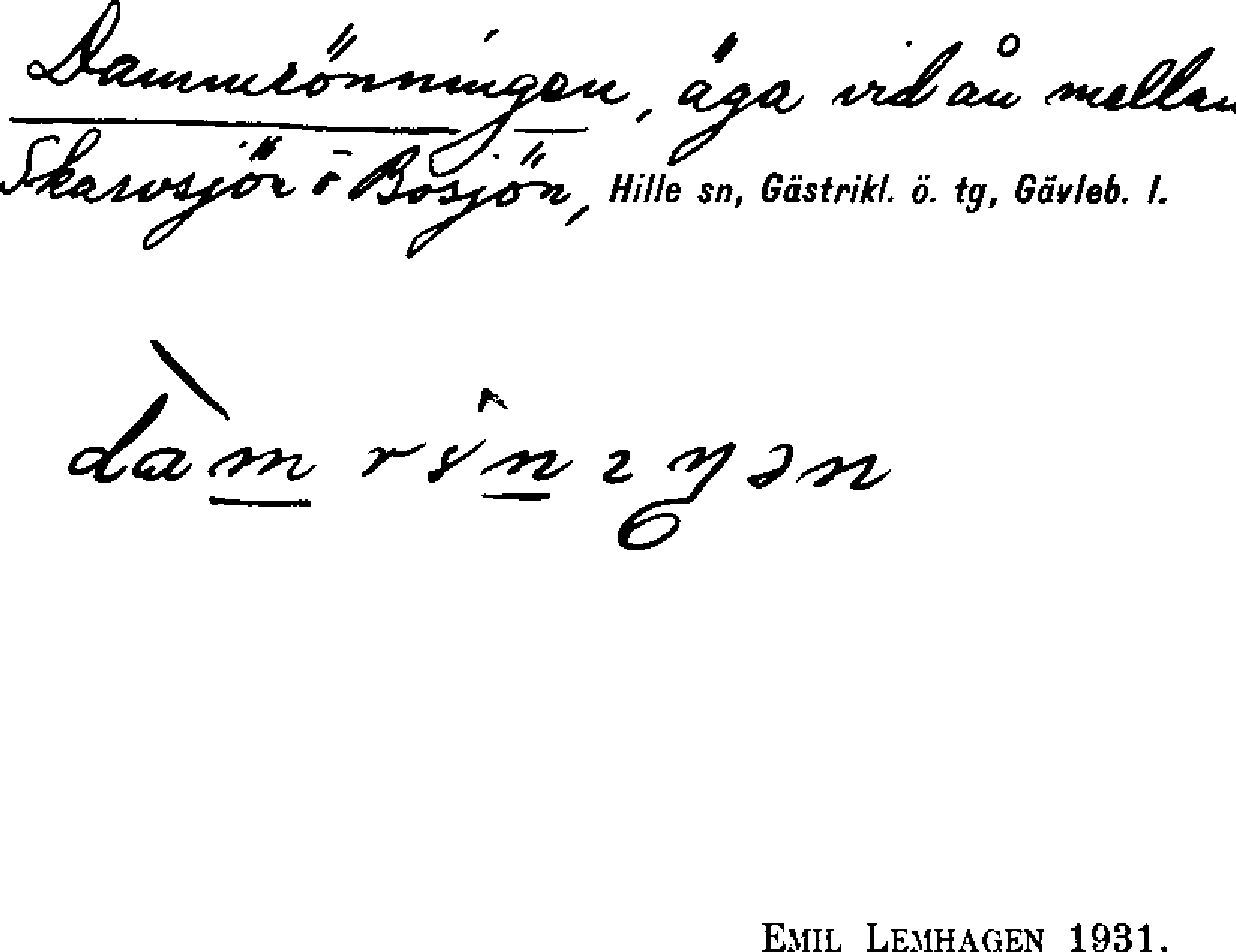 Dammrönningen, äga vid ån mellan
Skarvsjön o Bosjön, Hille sn, Gästrikl. ö. tg, Gävleb. l.
EMIL LEMHAGEN 1931.